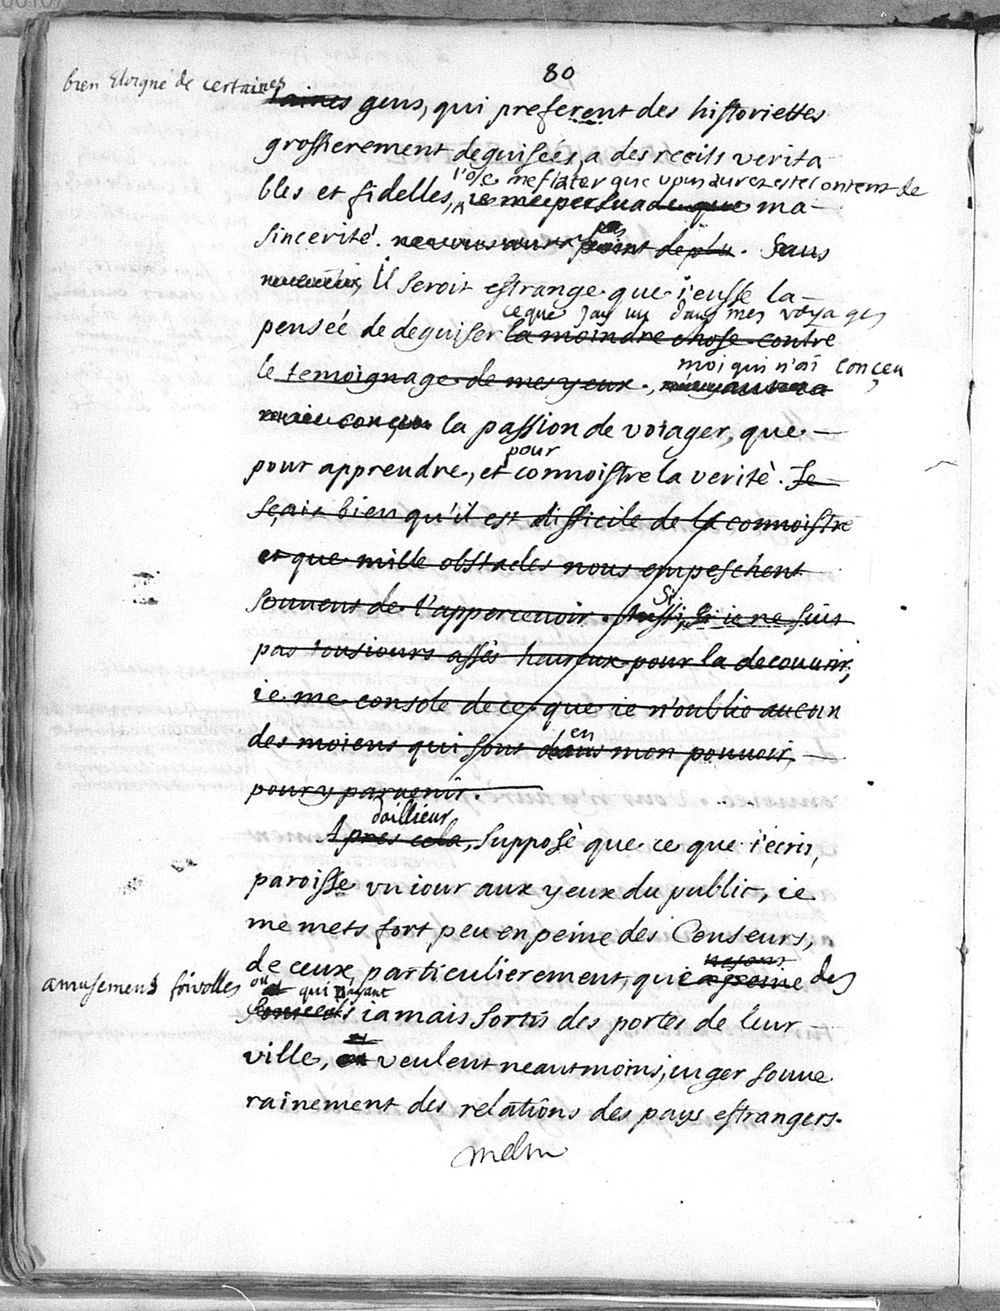 80
bien Eloigné de certaines
taines gens, qui preferent des historiettes
grossierement deguisées, a des recits verita
l'ose me flater que vous aurez estè content de
bles et fidelles, ie me persuade que ma
pas
sincerité. point de plu. Sans
Il seroit estrange que i'eusse la
ce que Jay vu dans mes voyages
pensée de deguiser la moindre chose contre
moi qui n'ai conceu
le temoignage de mes yeux.
conceu la passion de voiager, que
pour
pour apprendre, et connoistre la verité. Je
sçais bien qu'il est difficile de la connoistre
et que mille obstacles nous empeschent
souvent de l'appercevoir. Si
Aussi, Si ie ne suis
pas tousiours assés heureux pour la decouurir,
ie me console de ce que ie n'oublie aucun
en
des moiens qui sont dans mon pouuoir,
pour y paruenir.
daillieur
Apres cela, supposè que ce que i'écris,
paroisse vn iour aux yeux du public, ie
me mets fort peu en peine des Censeurs,
de ceux particulierement, qui a peine des
amusemens frivolles
ou qui n'ayant
iamais sortis des portes de leur
ville, veulent neantmoins, iuger souue
rainement des relations des pays estrangers.